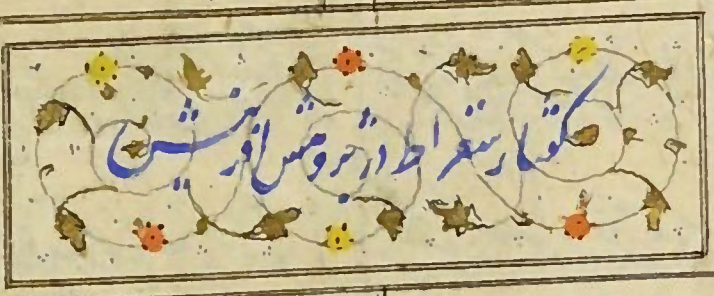 گفتار سقراط در پژوهش آفرینش